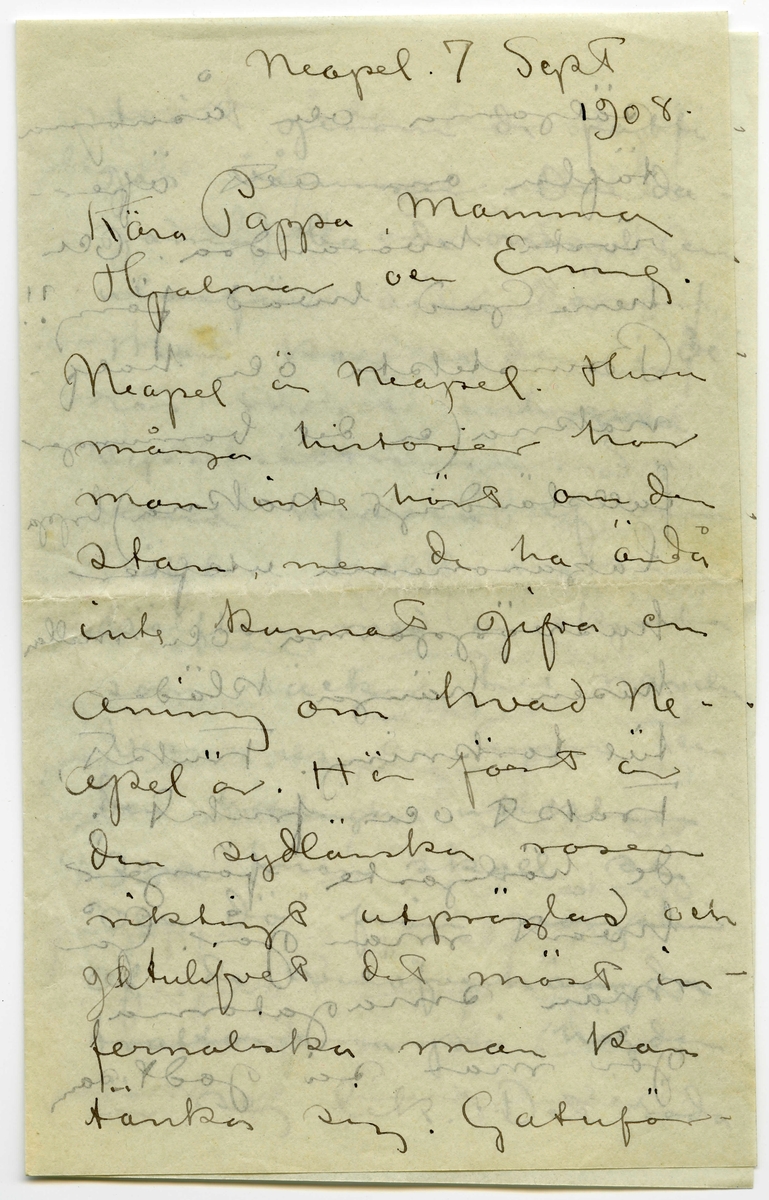 Neapel. 7 Sept
1908.
Kära Pappa, Mamma
Hjalmar och Emmy.
Neapel är Neapel. Huru
många historier har
man inte hört om den
stan, men de ha ändå
inte kunnat gifva en
aning om hvad Ne-
apel är. Här först är
den sydländska rasen
riktigt utpräglad och
gatulifvet det mäst in-
fernaliska man kan
tänka sig. Gatuför-